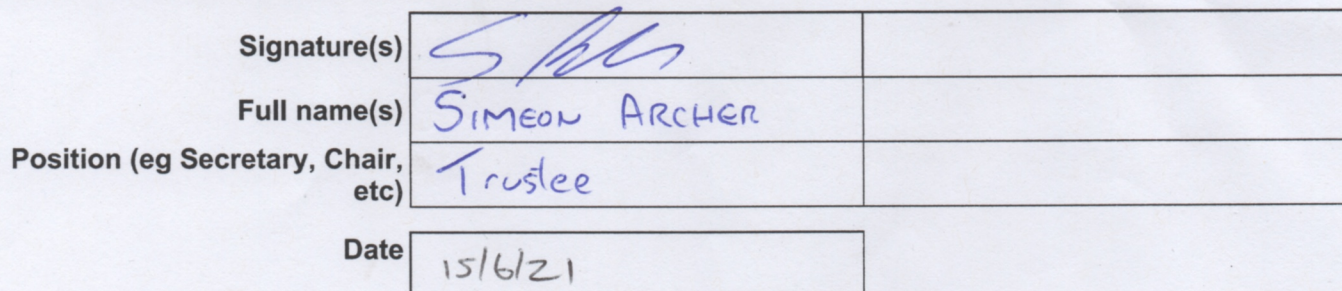 Signature(s)
Full name(s) SIMEON ARCHER
Position (eg Secretary, Chair,
etc) Trustee
Date 15/6/21